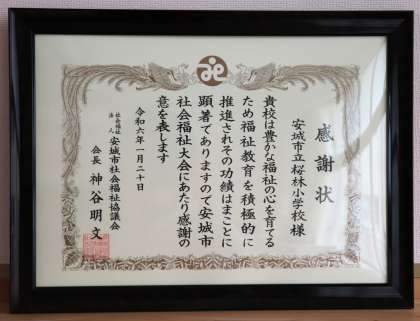 感謝状
安城市立桜林小学校様
貴校は豊かな福祉の心を育てる
ため福祉教育を積極的に
推進されその功績はまことに
顕著でありますので安城市
社会福祉大会にあたり感謝の
意を表します
令和六年一月二十日
社会福祉法人 安城市社会福祉協議会
会長 神谷明文